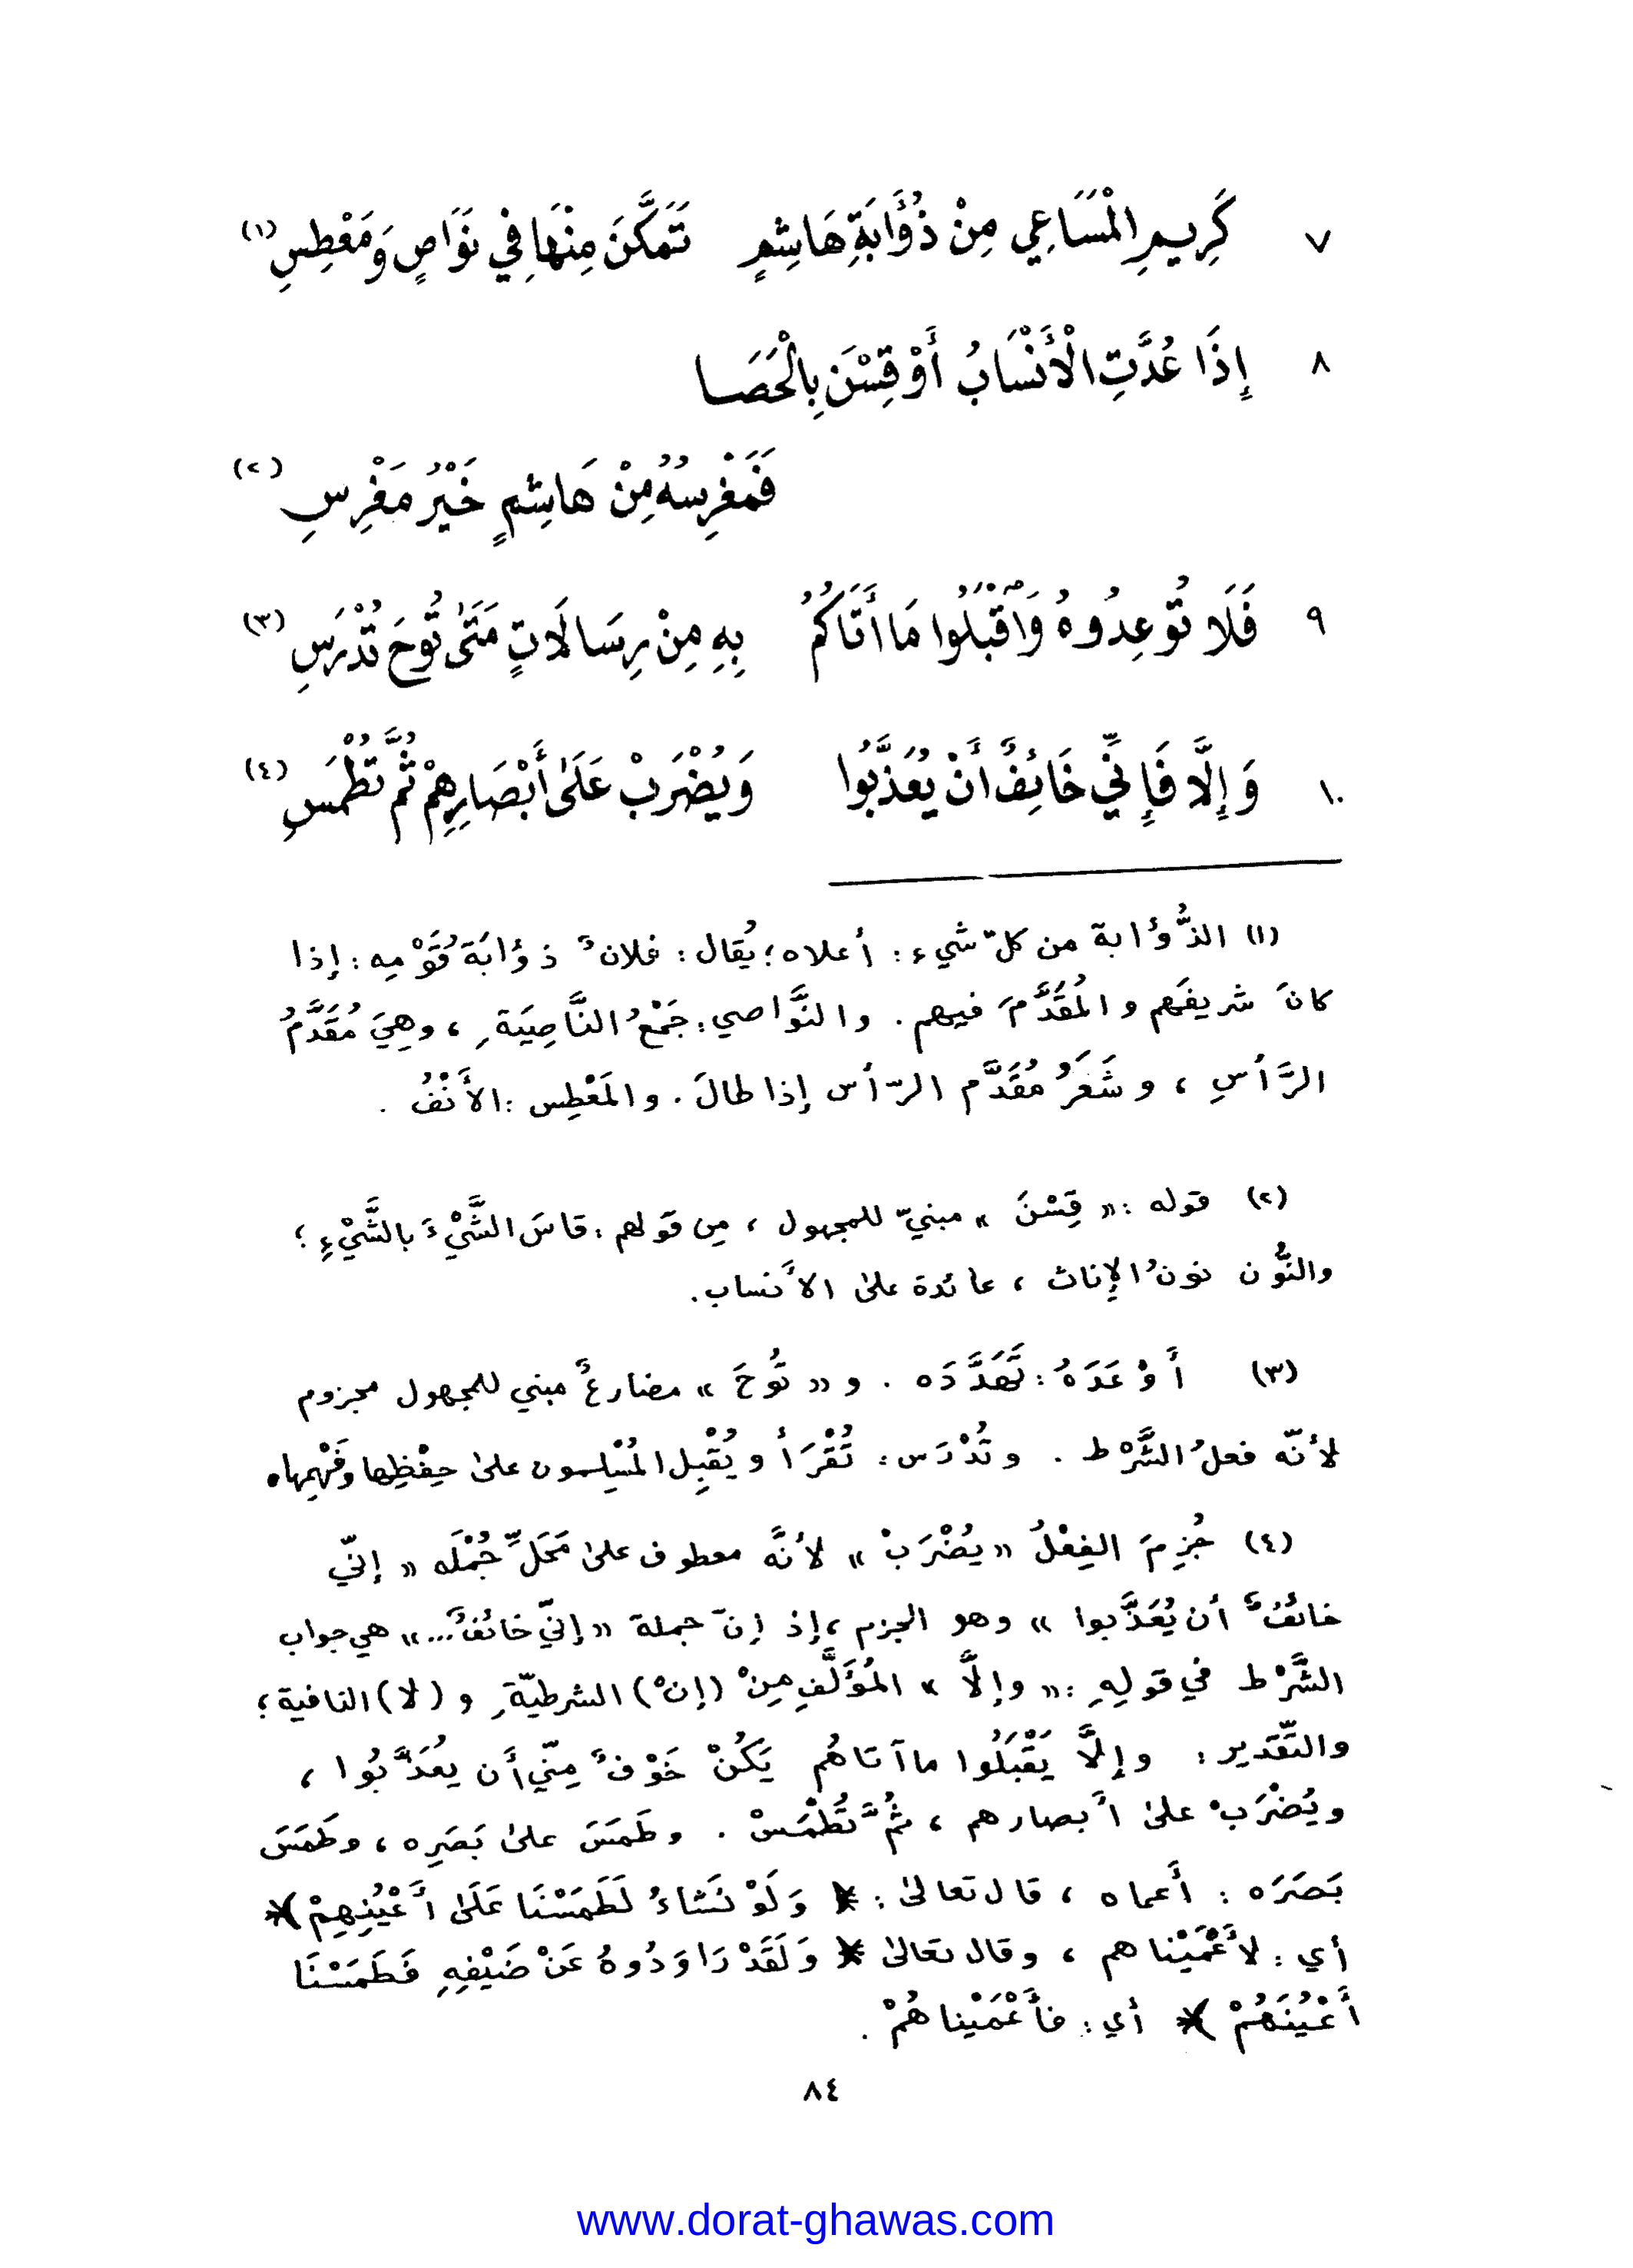 ٧ كَرِيمِ الْمَسَاعِي مِنْ ذُؤَابَةِ هَاشِمٍ تَمَكَّنَ مِنْهَا فِي نَوَاصٍ وَمَعْطِسِ (١)
٨ إِذَا عُدَّتِ الْأَنْسَابُ أَوْ قِسْنَ بِالْحَصَا
فَمَغْرِسُهُ مِنْ هَاشِمٍ خَيْرُ مَغْرِسِ (٢)
٩ فَلَا تُوعِدُوهُ وَاقْبَلُوا مَا أَتَاكُمُ بِهِ مِنْ رِسَالَاتٍ مَتَىٰ تُوحَ تُدْرَسِ (٣)
١٠ وَإِلَّا فَإِنِّي خَائِفٌ أَنْ يُعَذَّبُوا وَيُضْرَبْ عَلَىٰ أَبْصَارِهِمْ ثُمَّ تُطْمَسِ (٤)
(١) الذُّؤابة من كلّ شيء : أعلاه ؛ يُقال : فلانٌ ذؤابَةُ قَوْمِه : إذا
كانَ شريفَهم والمُقَدَّمَ فيهم . والنَّواصي : جَمْعُ النَّاصِيَةِ ، وهِيَ مُقَدَّمُ
الرَّأسِ ، وشَعَرُ مُقَدَّم الرّأس إذا طالَ . والمَعْطِس : الأَنْفُ .
(٢) قوله : « قِسْنَ » مبنيّ للمجهول ، مِن قولهم : قاسَ الشَّيْءَ بالشَّيْءِ ؛
والنُّون نونُ الإِناث ، عائدة علىٰ الأنساب .
(٣) أَوْعَدَهُ : تَهَدَّدَه . و « تُوحَ » مضارعٌ مبني للمجهول مجزوم
لأنّه فعلُ الشَّرْط . وتُدْرَس : تُقْرَأ ويُقْبِل المُسْلِمون علىٰ حِفْظِها وفَهْمِها .
(٤) جُزِمَ الفِعْلُ « يُضْرَبْ » لأنَّه معطوف علىٰ مَحَلِّ جُمْلَه « إنّي
خائفٌ أن يُعَذَّبوا » وهو الجزم ، إذ إنّ جملة « إنّي خائفٌ ... » هي جواب
الشَّرْط في قولِهِ : « وإلَّا » المُؤَلَّفِ مِنْ ( إنْ ) الشرطيّةِ و ( لا ) النافية ؛
والتّقدير : وإلَّا يَقْبَلُوا ما آتاهُم يَكُنْ خَوْفٌ مِنّي أَن يُعَذَّبُوا ،
ويُضْرَبْ علىٰ أبصارهم ، ثُمَّ تُطْمَسْ . وطَمَسَ علىٰ بَصَرِه ، وطَمَسَ
بَصَرَه : أَعماه ، قال تعالىٰ : ﴿ وَلَوْ نَشَاءُ لَطَمَسْنَا عَلَىٰ أَعْيُنِهِمْ ﴾
أي : لأَعْمَيْناهم ، وقال تعالىٰ ﴿ وَلَقَدْ رَاوَدُوهُ عَنْ ضَيْفِهِ فَطَمَسْنَا
أَعْيُنَهُمْ ﴾ أي : فأَعْمَيْناهُمْ .
٨٤
www.dorat-ghawas.com